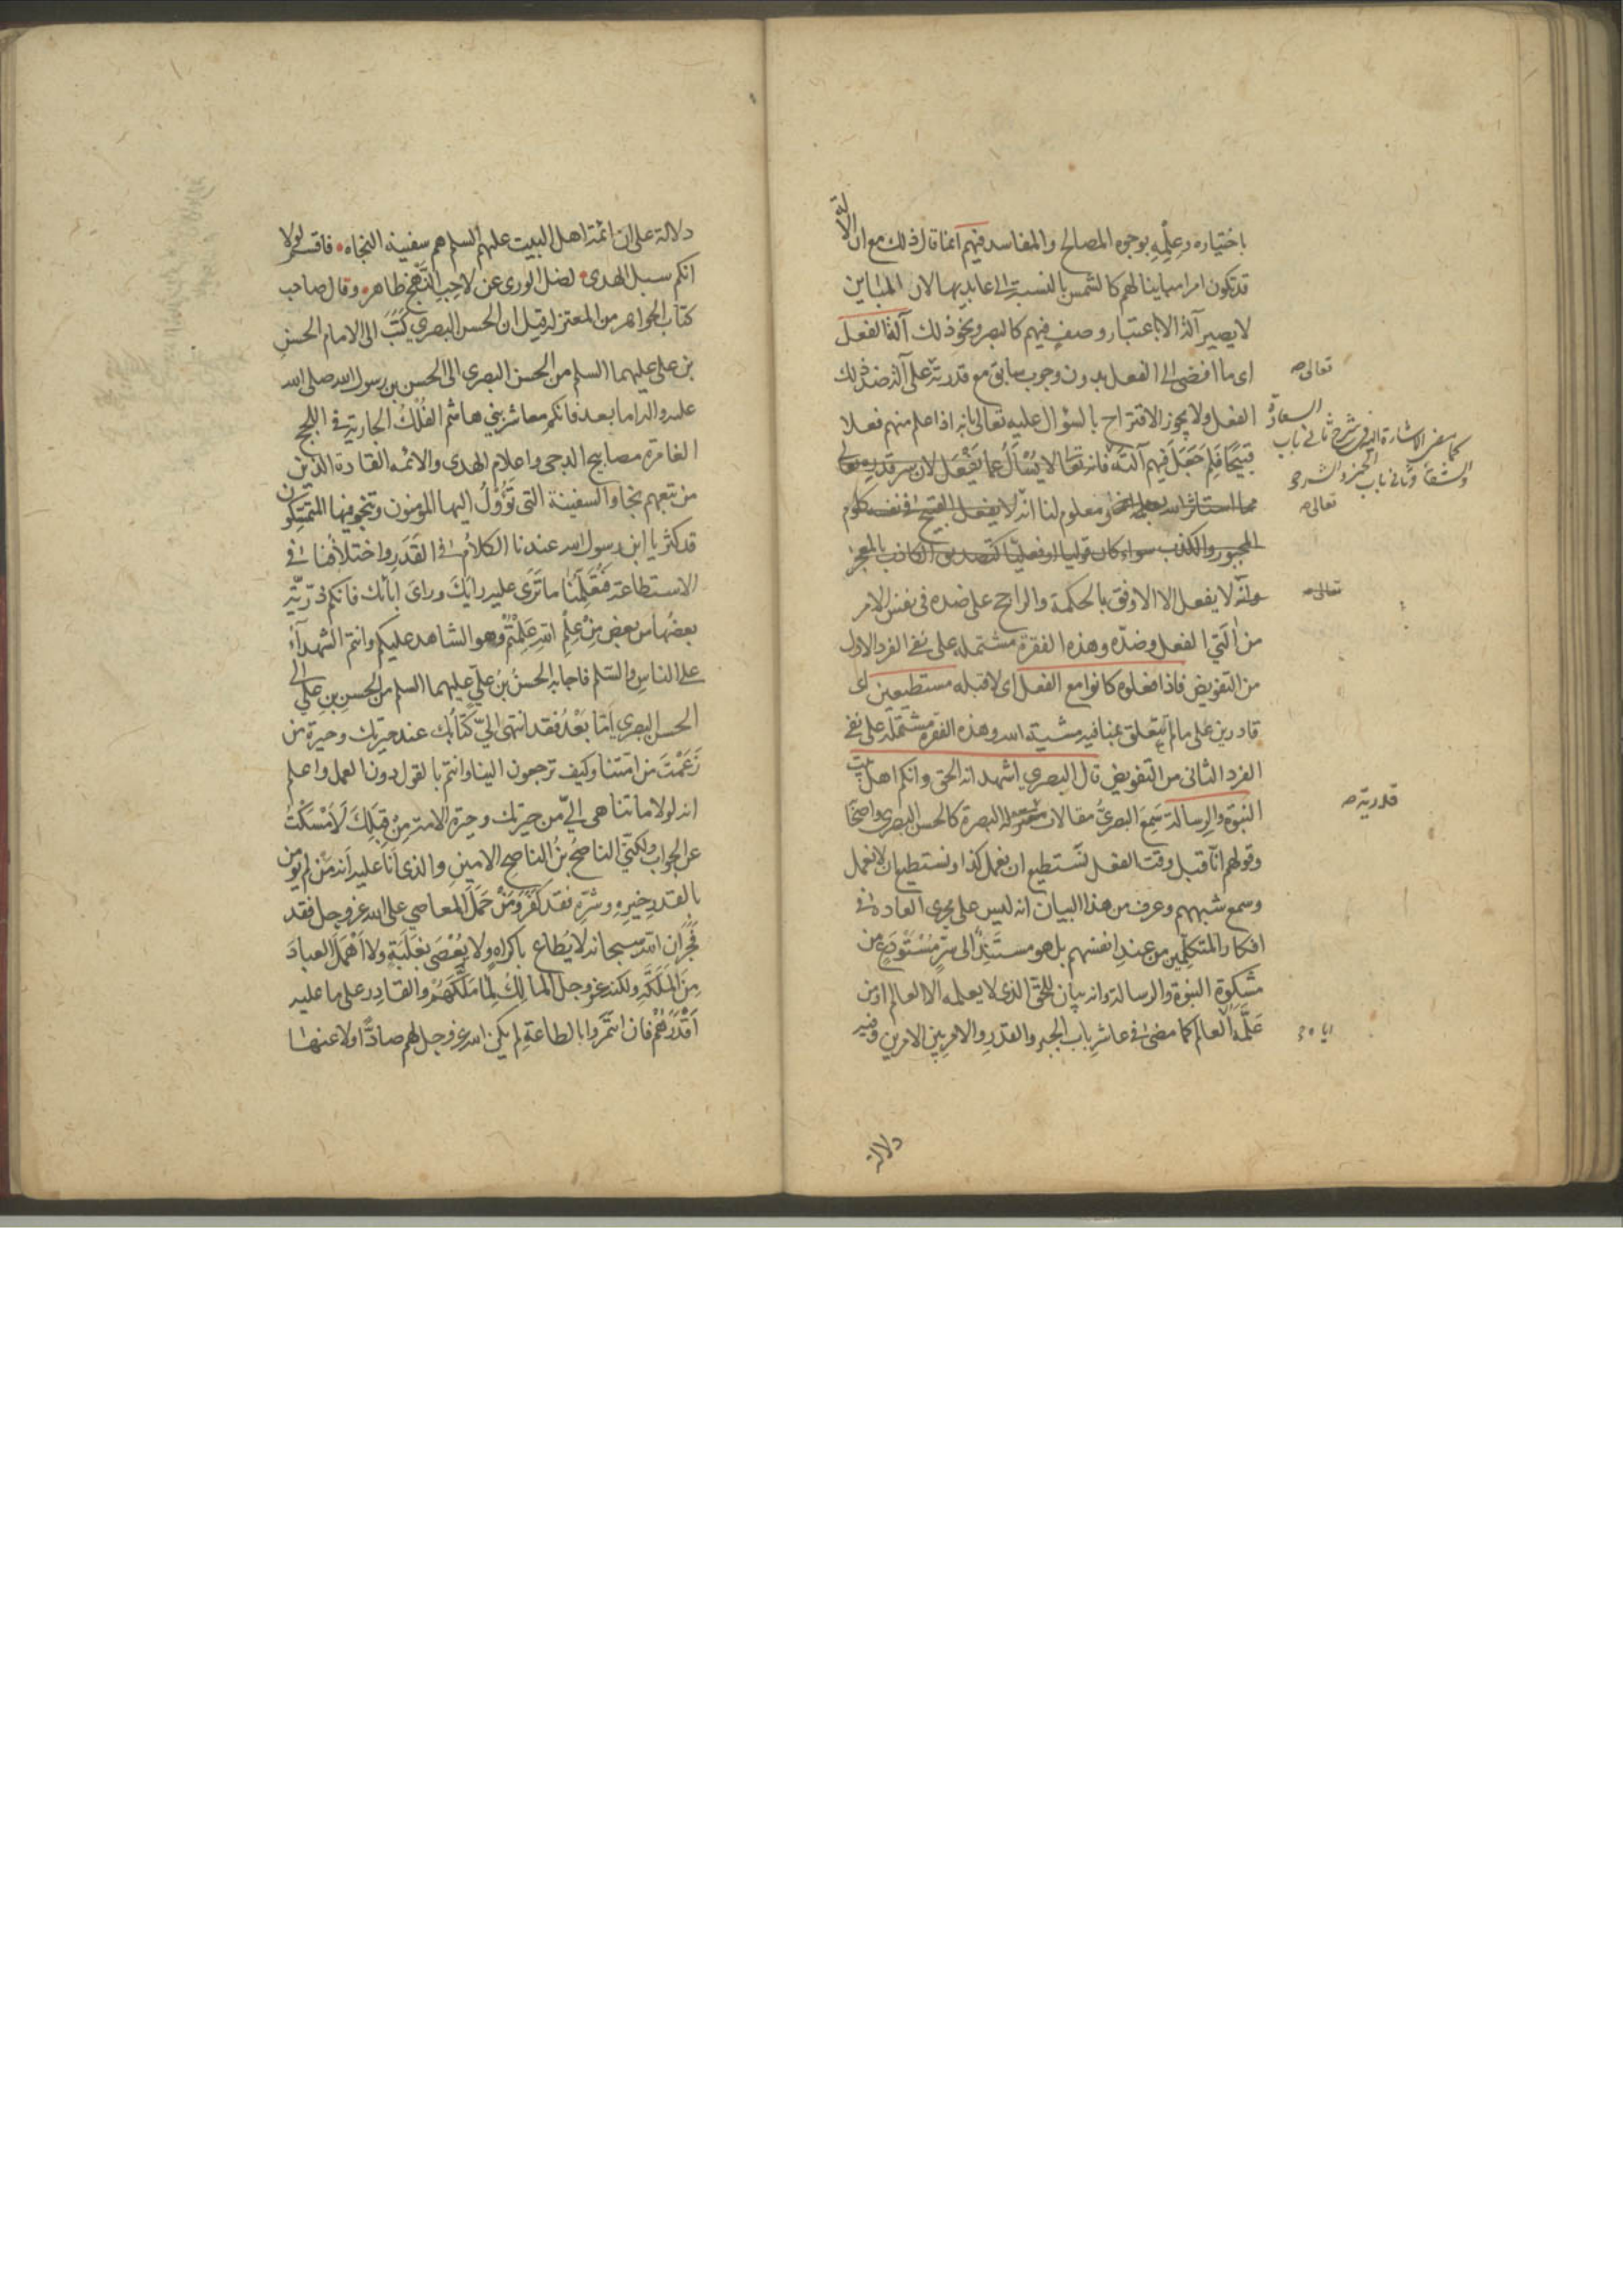 باختياره وعِلْمِه بوجوه المصالح والمفاسد فيهم انما قال ذلك مع ان الالة
قد تكون امرا مباينا لهم كالشمس بالنسبة الى عابديها لان المباين
لا يصير آلة الا باعتبار وصفٍ فيهم كالبصر ونحو ذلك آلة الفعل
اى ما افضى الى الفعل بدون وجوب سابق مع قدرته على آلة ضد ذلك
تعالى صح
الفعل ولا يجوز الاقتراح بالسؤال عليه تعالى بانه اذا علم منهم فعلا
قبيحًا فلِمَ جَعَلَ فيهم آلته فانه تعالى لا يُسْأَلُ عما يَفْعَل لان سر قدره تعالى
كما مضى الاشارة اليه فى شرح ثانى باب السعادة
والشقاء وثانى باب الخير والشر صح
مما استاثر الله بعلمه لكن معلوم لنا انّه لا يفعل القبيح فى نفسه كلوم
تعالى صح
المجبور والكذب سواء كان قوليا او فعليّا كتصديق الكاذب بالمعجز
وانّه لا يفعل الا الاوفق بالحكمة والراجح على ضده فى نفس الامر
تعالى صح
من آلتي الفعل وضدّه وهذه الفقرة مشتملة على نفى الفرد الاول
من التفويض فاذا فعلوه كانوا مع الفعل اى لا قبله مستطيعين اى
قادرين على ما لم يتعلق بمنافيه مشية الله وهذه الفقرة مشتملة على نفى
الفرد الثانى من التفويض قال البصري اشهد انه الحق وانكم اهل بيت
النبوة والرسالة سَمِعَ البصريُّ مقالات معتزلة البصرة كالحسن البصرى واضحًا
قدرية صح
وقولهم انّا قبل وقت الفعل نستطيع ان نعمل كذا ونستطيع ان لا نعمل
وسمع شبههم وعرف من هذا البيان انه ليس على مجرى العادة فى
افكار المتكلّمين من عند انفسهم بل هو مستَنِدٌ الى سرٍّ مُسْتَودَعٍ من
مشكوة النبوة والرسالة وانه بيان للحق الذى لا يعلمه الا العالم او من
عَلَّمَه العالم كما مضى فى عاشر باب الجبر والقدر والامر بين الامرين وفيه
اياه صح
دلالة
دلالة على ان ائمة اهل البيت عليهم السلم هم سفينة النجاة فاقسم لولا
انكم سبل الهدى لضل الورى عن لاحِبِ النَّهْجِ ظاهر وقال صاحب
كتاب الجواهر من المعتزلة قيل ان الحسن البصري كَتَبَ الى الامام الحسنِ
بن على عليهما السلم من الحسن البصرى الى الحسن بن رسول الله صلى الله
عليه واله اما بعد فانكم معاشر بني هاشم الفُلْكُ الجارية فى اللجج
الغامرة مصابيح الدجى واعلام الهدى والائمة القادة الذين
من تبعهم نجا والسفينة التى تَؤُوْلُ اليها المؤمنون وتنجو فيها المتمسكون
قد كثر يا ابن رسول الله عندنا الكلامُ فى القَدَرِ واختلافُنا فى
الاستطاعة فَتُعَلِّمُنا ما تَرَى عليه رايَك وراىَ ابائك فانكم ذرّيّة
بعضُها من بعض مِنْ عِلْمِ اللهِ عَلِمْتُمْ وهو الشاهد عليكم وانتم الشهدآء
على الناس والسّلم فاجابه الحسنُ بنُ عليّ عليهما السلم من الحسنِ بنِ عليّ الى
الحسن البصرى اَمّا بَعْدُ فقد انتهى اليّ كتابُك عند حيرتك وحيرة من
زَعَمْتَ من امتنا وكيف ترجعون الينا وانتم بالقول دون العمل واعلم
انه لولا ما تناهى اليّ من حيرتك وحيرة الامة مِنْ قِبَلِكَ لَأمْسَكْتُ
عن الجواب ولكني الناصحُ بنُ الناصحِ الامينِ والذى اَنَا عليه اَنه مَنْ لم يؤمن
بالقدرِ خيرِه وشرّه فقد كَفَرَ ومَنْ حَمَلَ المعاصي على الله عز وجل فقد
فَجَرَ ان الله سبحانه لا يُطاع باكراهٍ ولا يُعْصَى بغَلَبَةٍ ولا اَهْمَلَ العبادَ
مِنَ المَلَكَةِ ولكنه عز وجل المالِكُ لِمَا مَلَّكَهُمْ والقادِر على ما عليه
اَقْدَرَهُمْ فان ائتمروا بالطاعةِ لم يكن الله عز وجل لهم صادًّا ولا عنها